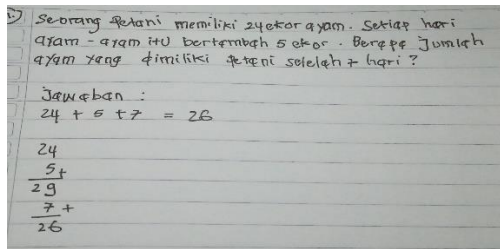 Seorang petani memiliki 24 ekor ayam. Setiap hari
ayam - ayam itu bertambah 5 ekor. Berapa jumlah
ayam yang dimiliki petani setelah 7 hari ?
Jawaban :
24 + 5 + 7 = 26
24
5+
29
7 +
26